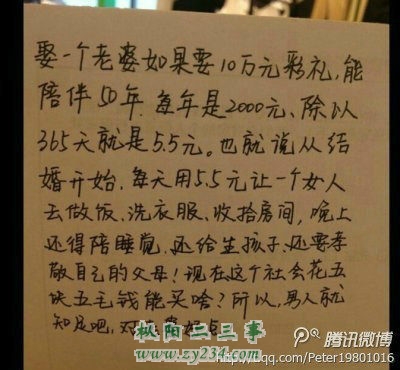 娶一个老婆如果要10万元彩礼,能
陪伴50年.每年是2000元、除以
365天就是5.5元。也就说从结
婚开始.每天用5.5元让一个女人
去做饭、洗衣服、收拾房间,晚上
还得陪睡觉.还给生孩子.还要孝
敬自己的父母!现在这个社会花五
块五毛钱能买啥?所以,男人就
知足吧,对
枞阳二三事
www.zy234.com
腾讯微博
http://t.qq.com/Peter19801016